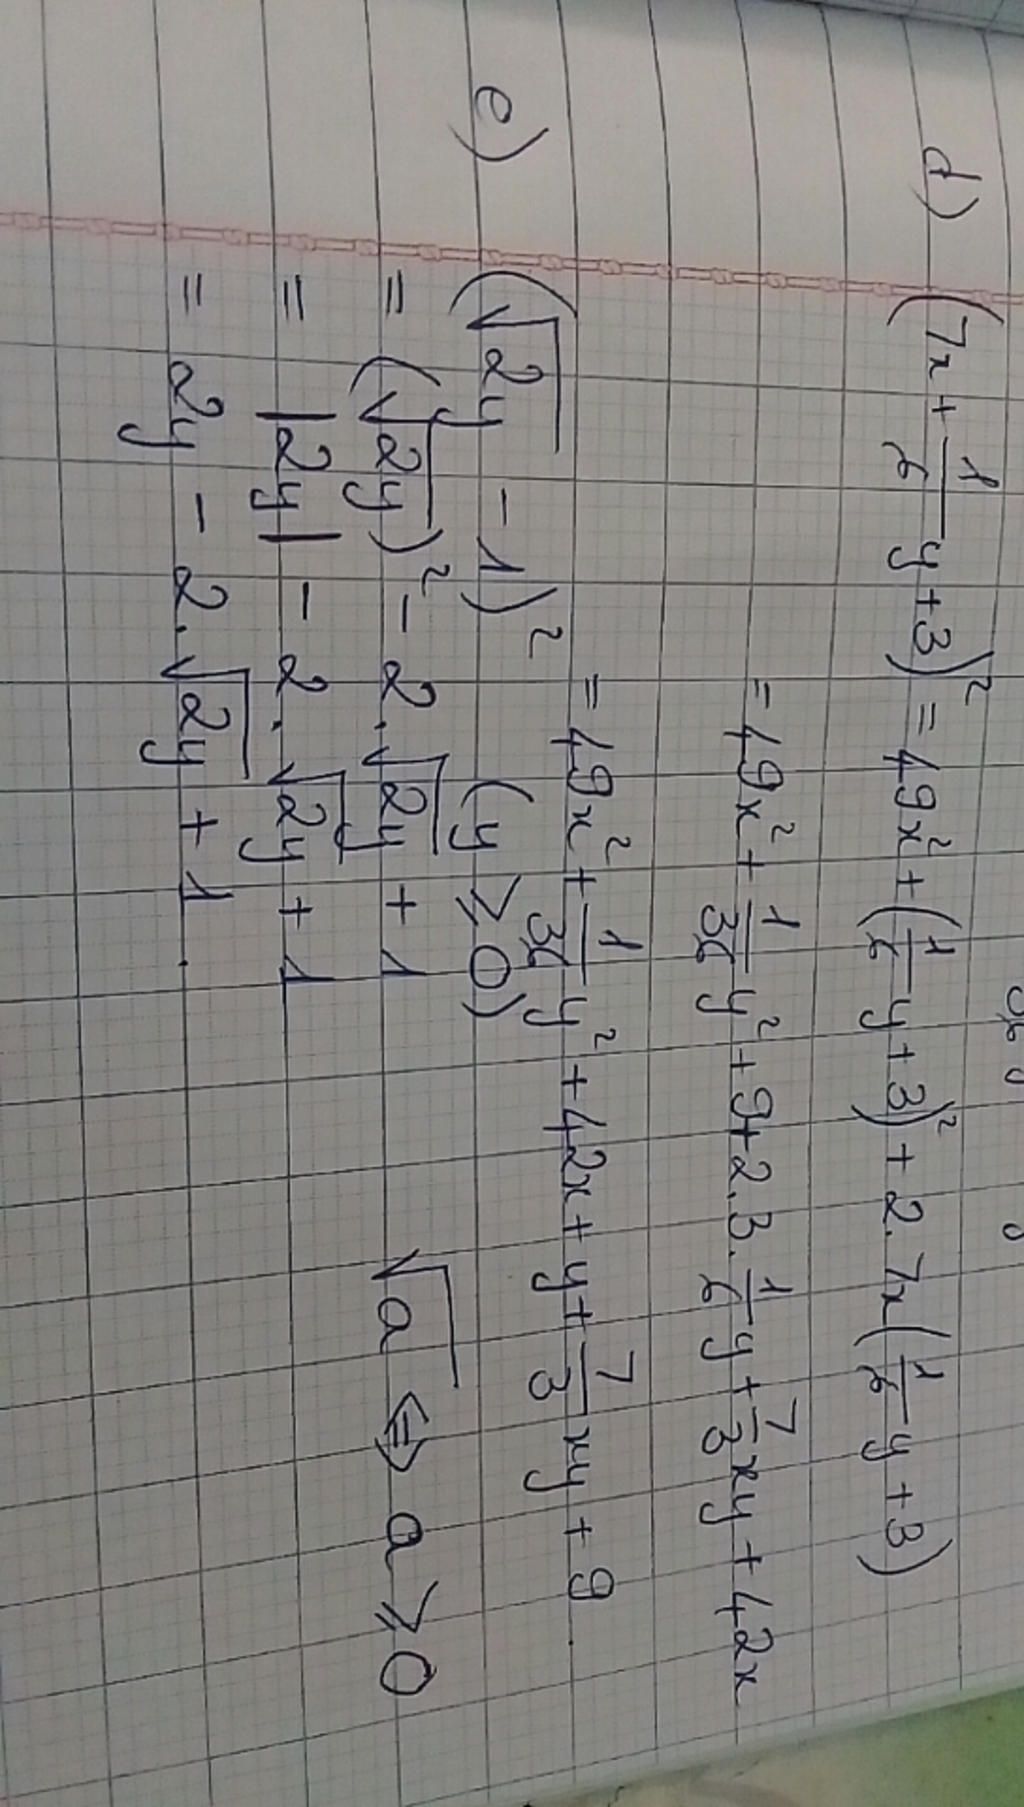 d) (7x + 1/6 y + 3)² = 49x² + (1/6 y + 3)² + 2.7x(1/6 y + 3)
= 49x² + 1/36 y² + 9 + 2.3.1/6 y + 7/3 xy + 42x
= 49x² + 1/36 y² + 42x + y + 7/3 xy + 9.
e) (√2y - 1)² (y ⩾ 0)
= (√2y)² - 2.√2y + 1 √a ⇔ a ⩾ 0
= |2y| - 2.√2y + 1
= 2y - 2.√2y + 1.